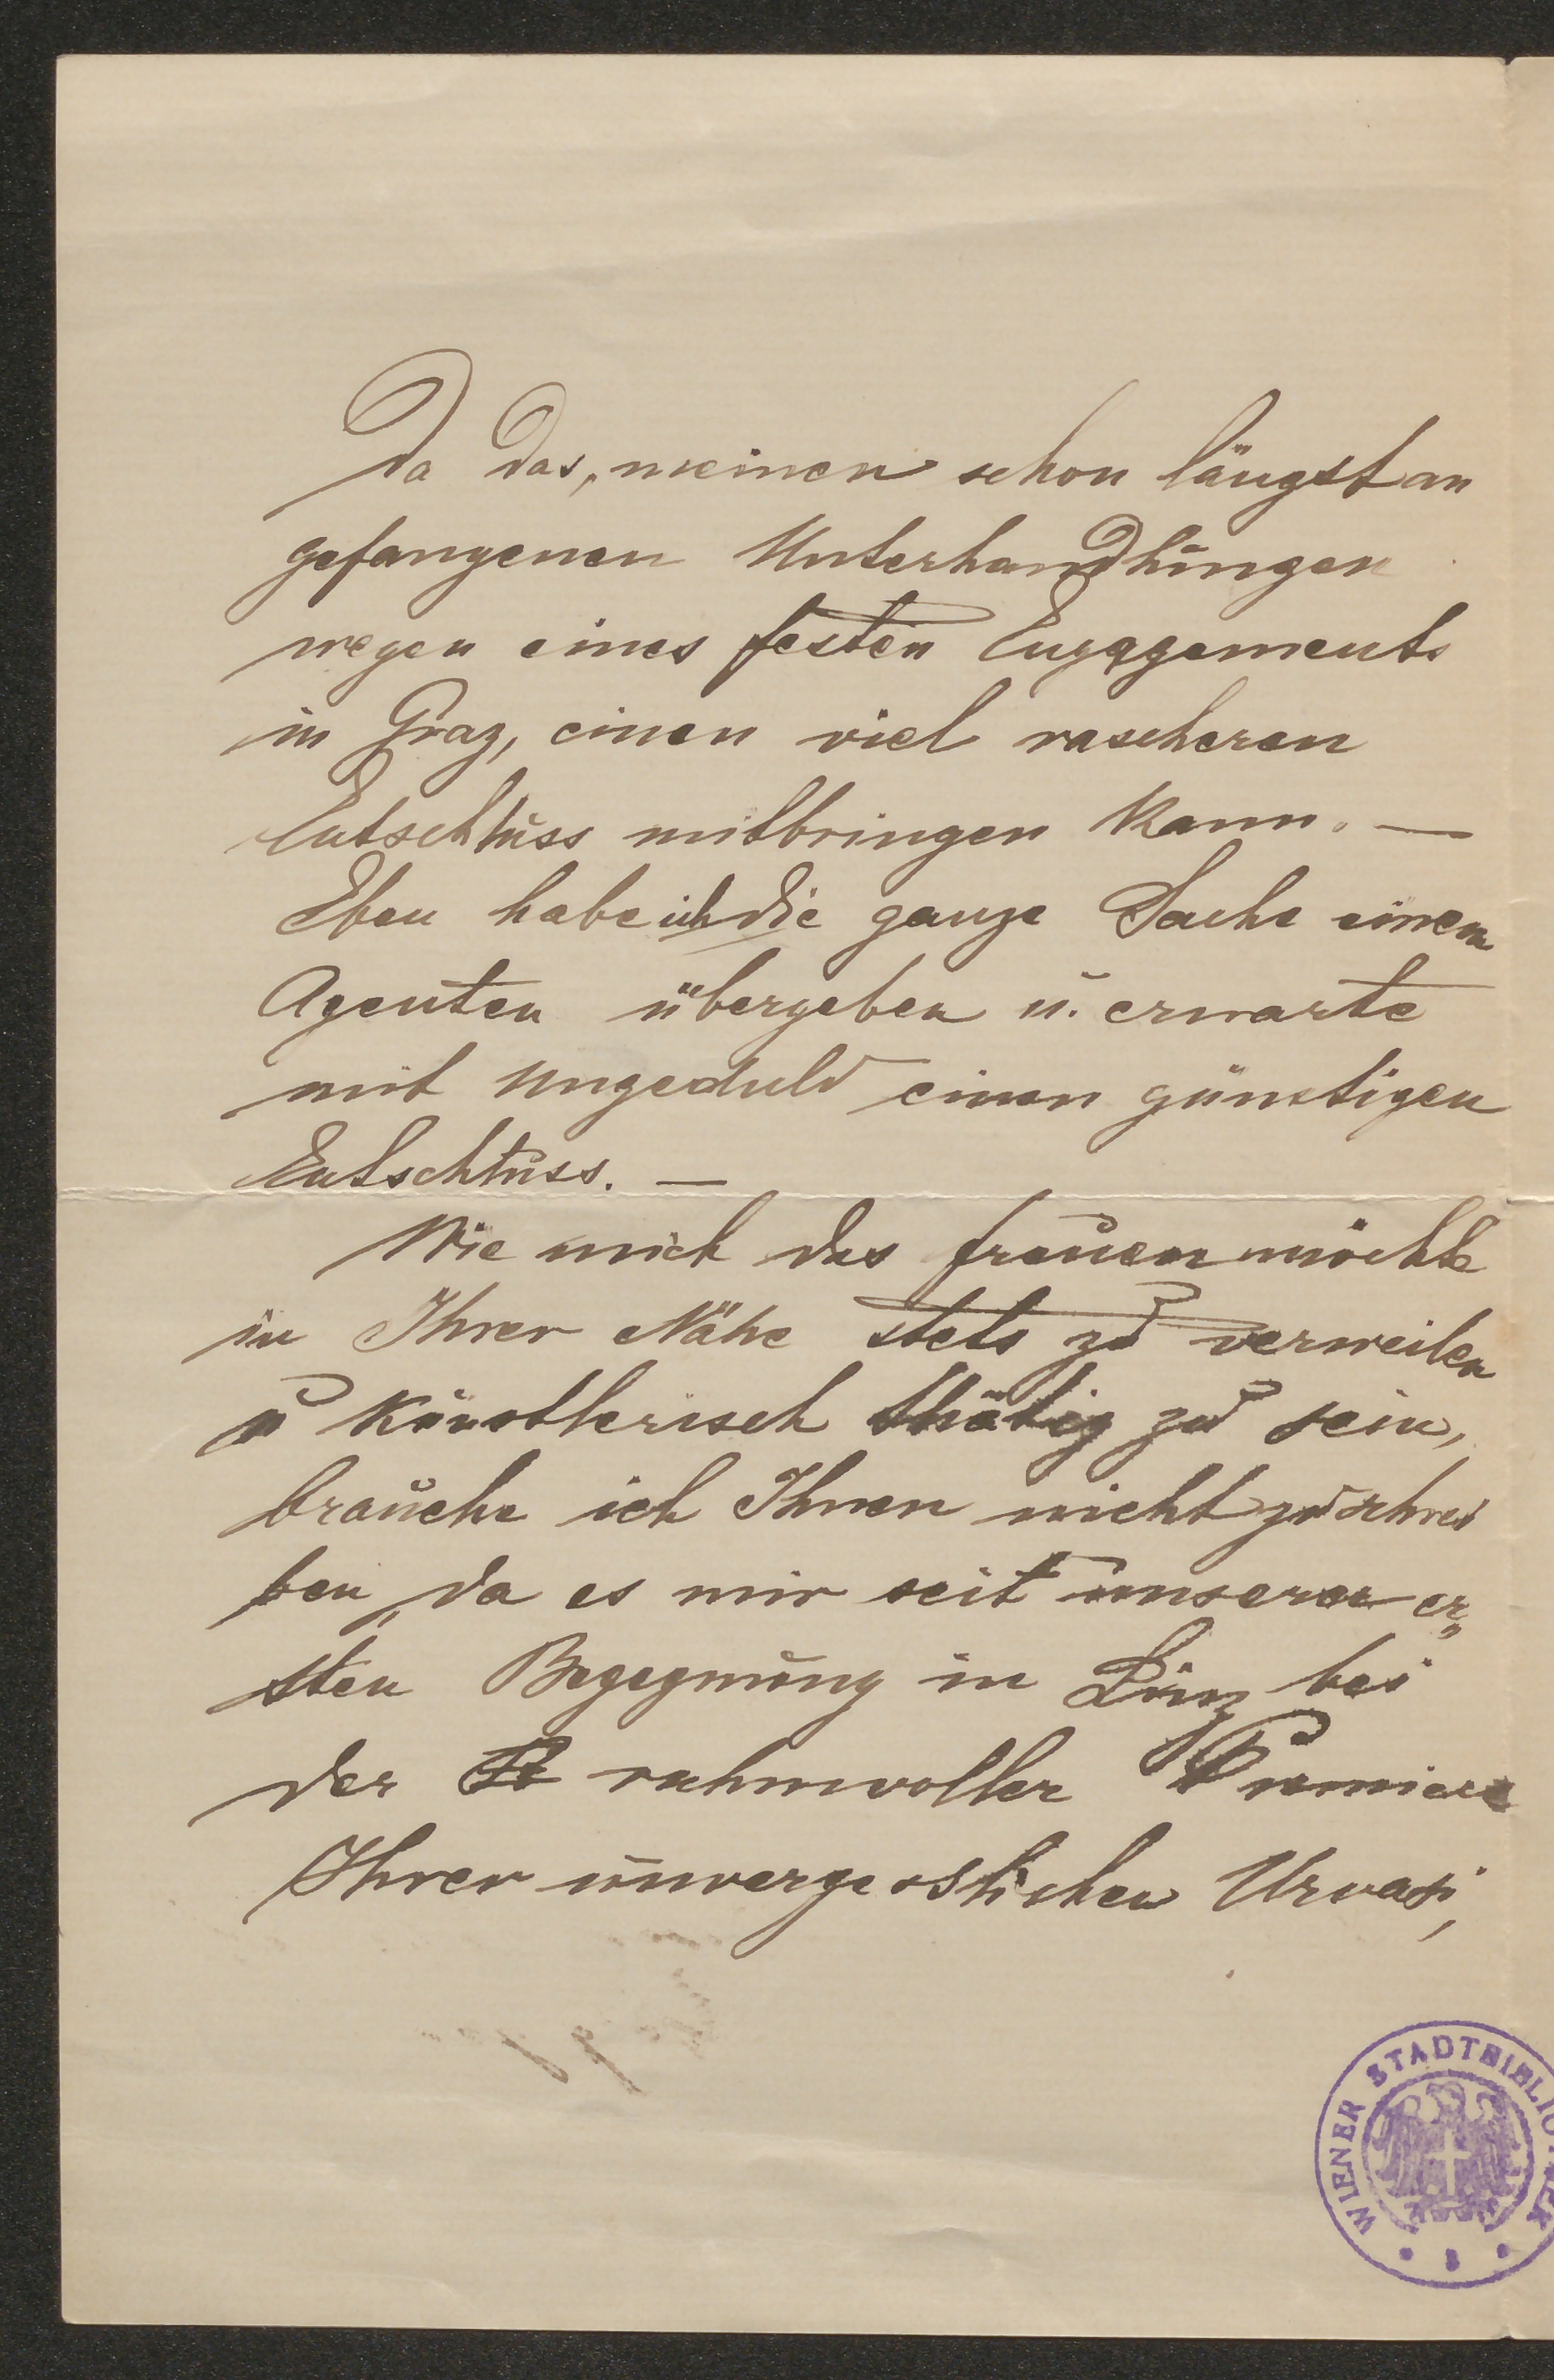 Da das, meinen schon längst an
gefangenen Unterhandlungen
wegen eines festen Engagements
in Graz, einen viel rascheren
Entschluss mitbringen kann. —
Eben habe ich die ganze Sache einem
Agenten übergeben u. erwarte
mit Ungeduld einen günstigen
Entschluss. —
Wie mich das freuen möchte
in Ihrer Nähe stets zu verweilen
u künstlerisch thätig zu sein,
brauche ich Ihnen nicht zu schrei
ben, da es mir seit unserer er„
sten Begegnung in Linz bei
der ruhmvoller Premiere
Ihrer unvergesslichen Urvasi,
WIENER STADTBIBLIOTHEK